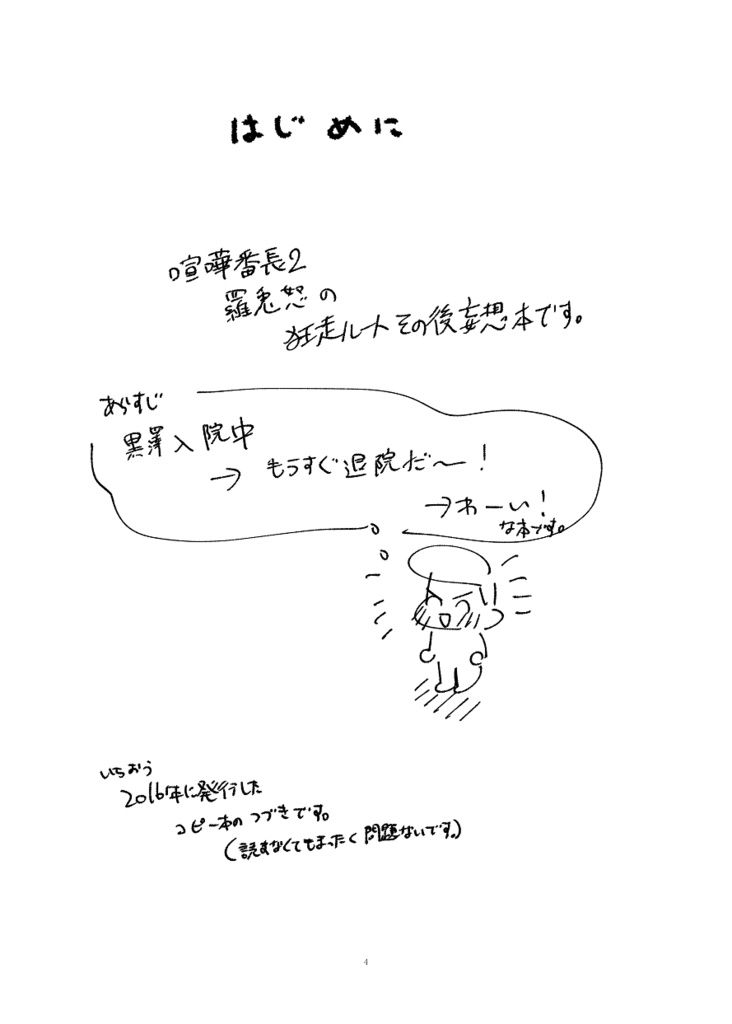 はじめに
喧嘩番長2
羅兎恕の
狂走ルートその後妄想本です。
あらすじ
黒澤入院中
→もうすぐ退院だ〜!
→わーい!
な本です。
いちおう
2016年に発行した
コピー本のつづきです。
(読まなくてもまったく問題ないです。)
4